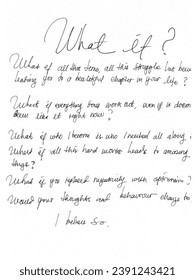 What if?
What if all the fear, all this struggle has been
leading you to a beautiful chapter in your life?
What if everything does work out, even if it doesn't
seem like it right now?
What if who I become is who I needed all along.
What if all this hard works leads to amazing
things?
What if you replaced negativity with optimism?
Would your thoughts and behaviour change to
I believe so.